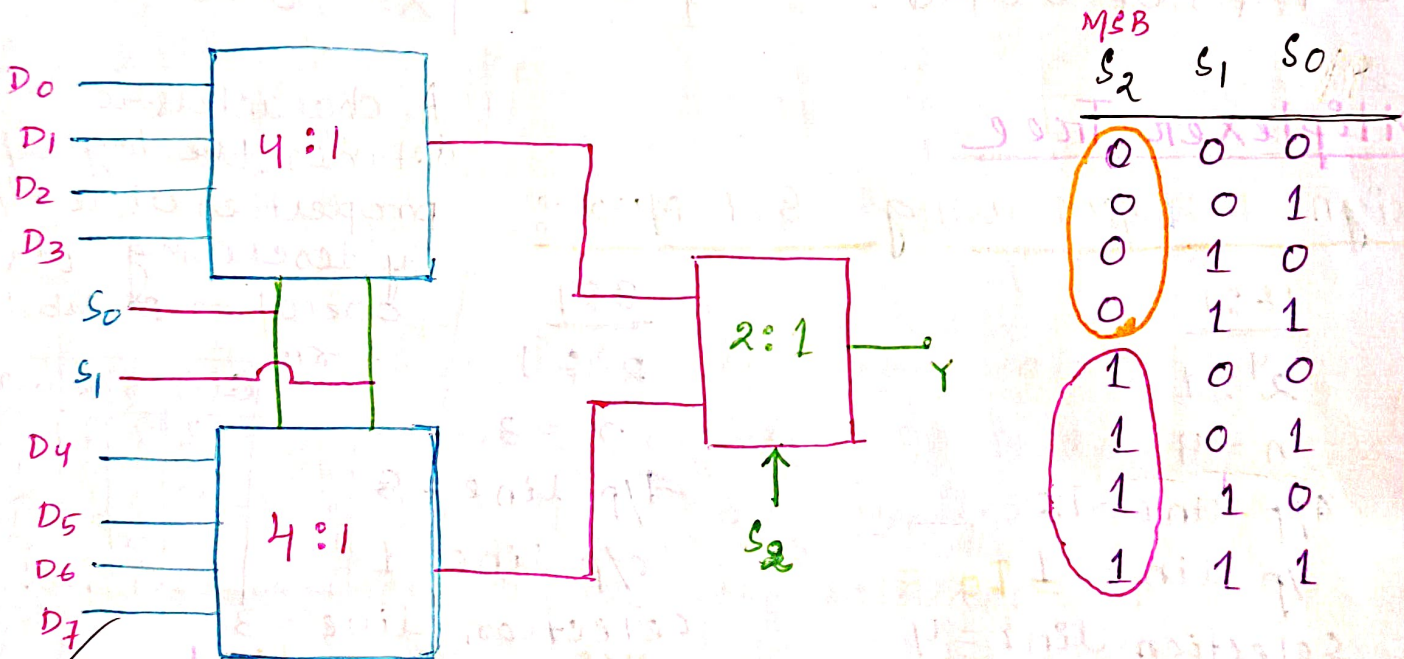 D0
D1
D2
D3
4:1
S0
S1
D4
D5
D6
D7
4:1
2:1
Y
S2
MSB
S2 S1 S0
0 0 0
0 0 1
0 1 0
0 1 1
1 0 0
1 0 1
1 1 0
1 1 1